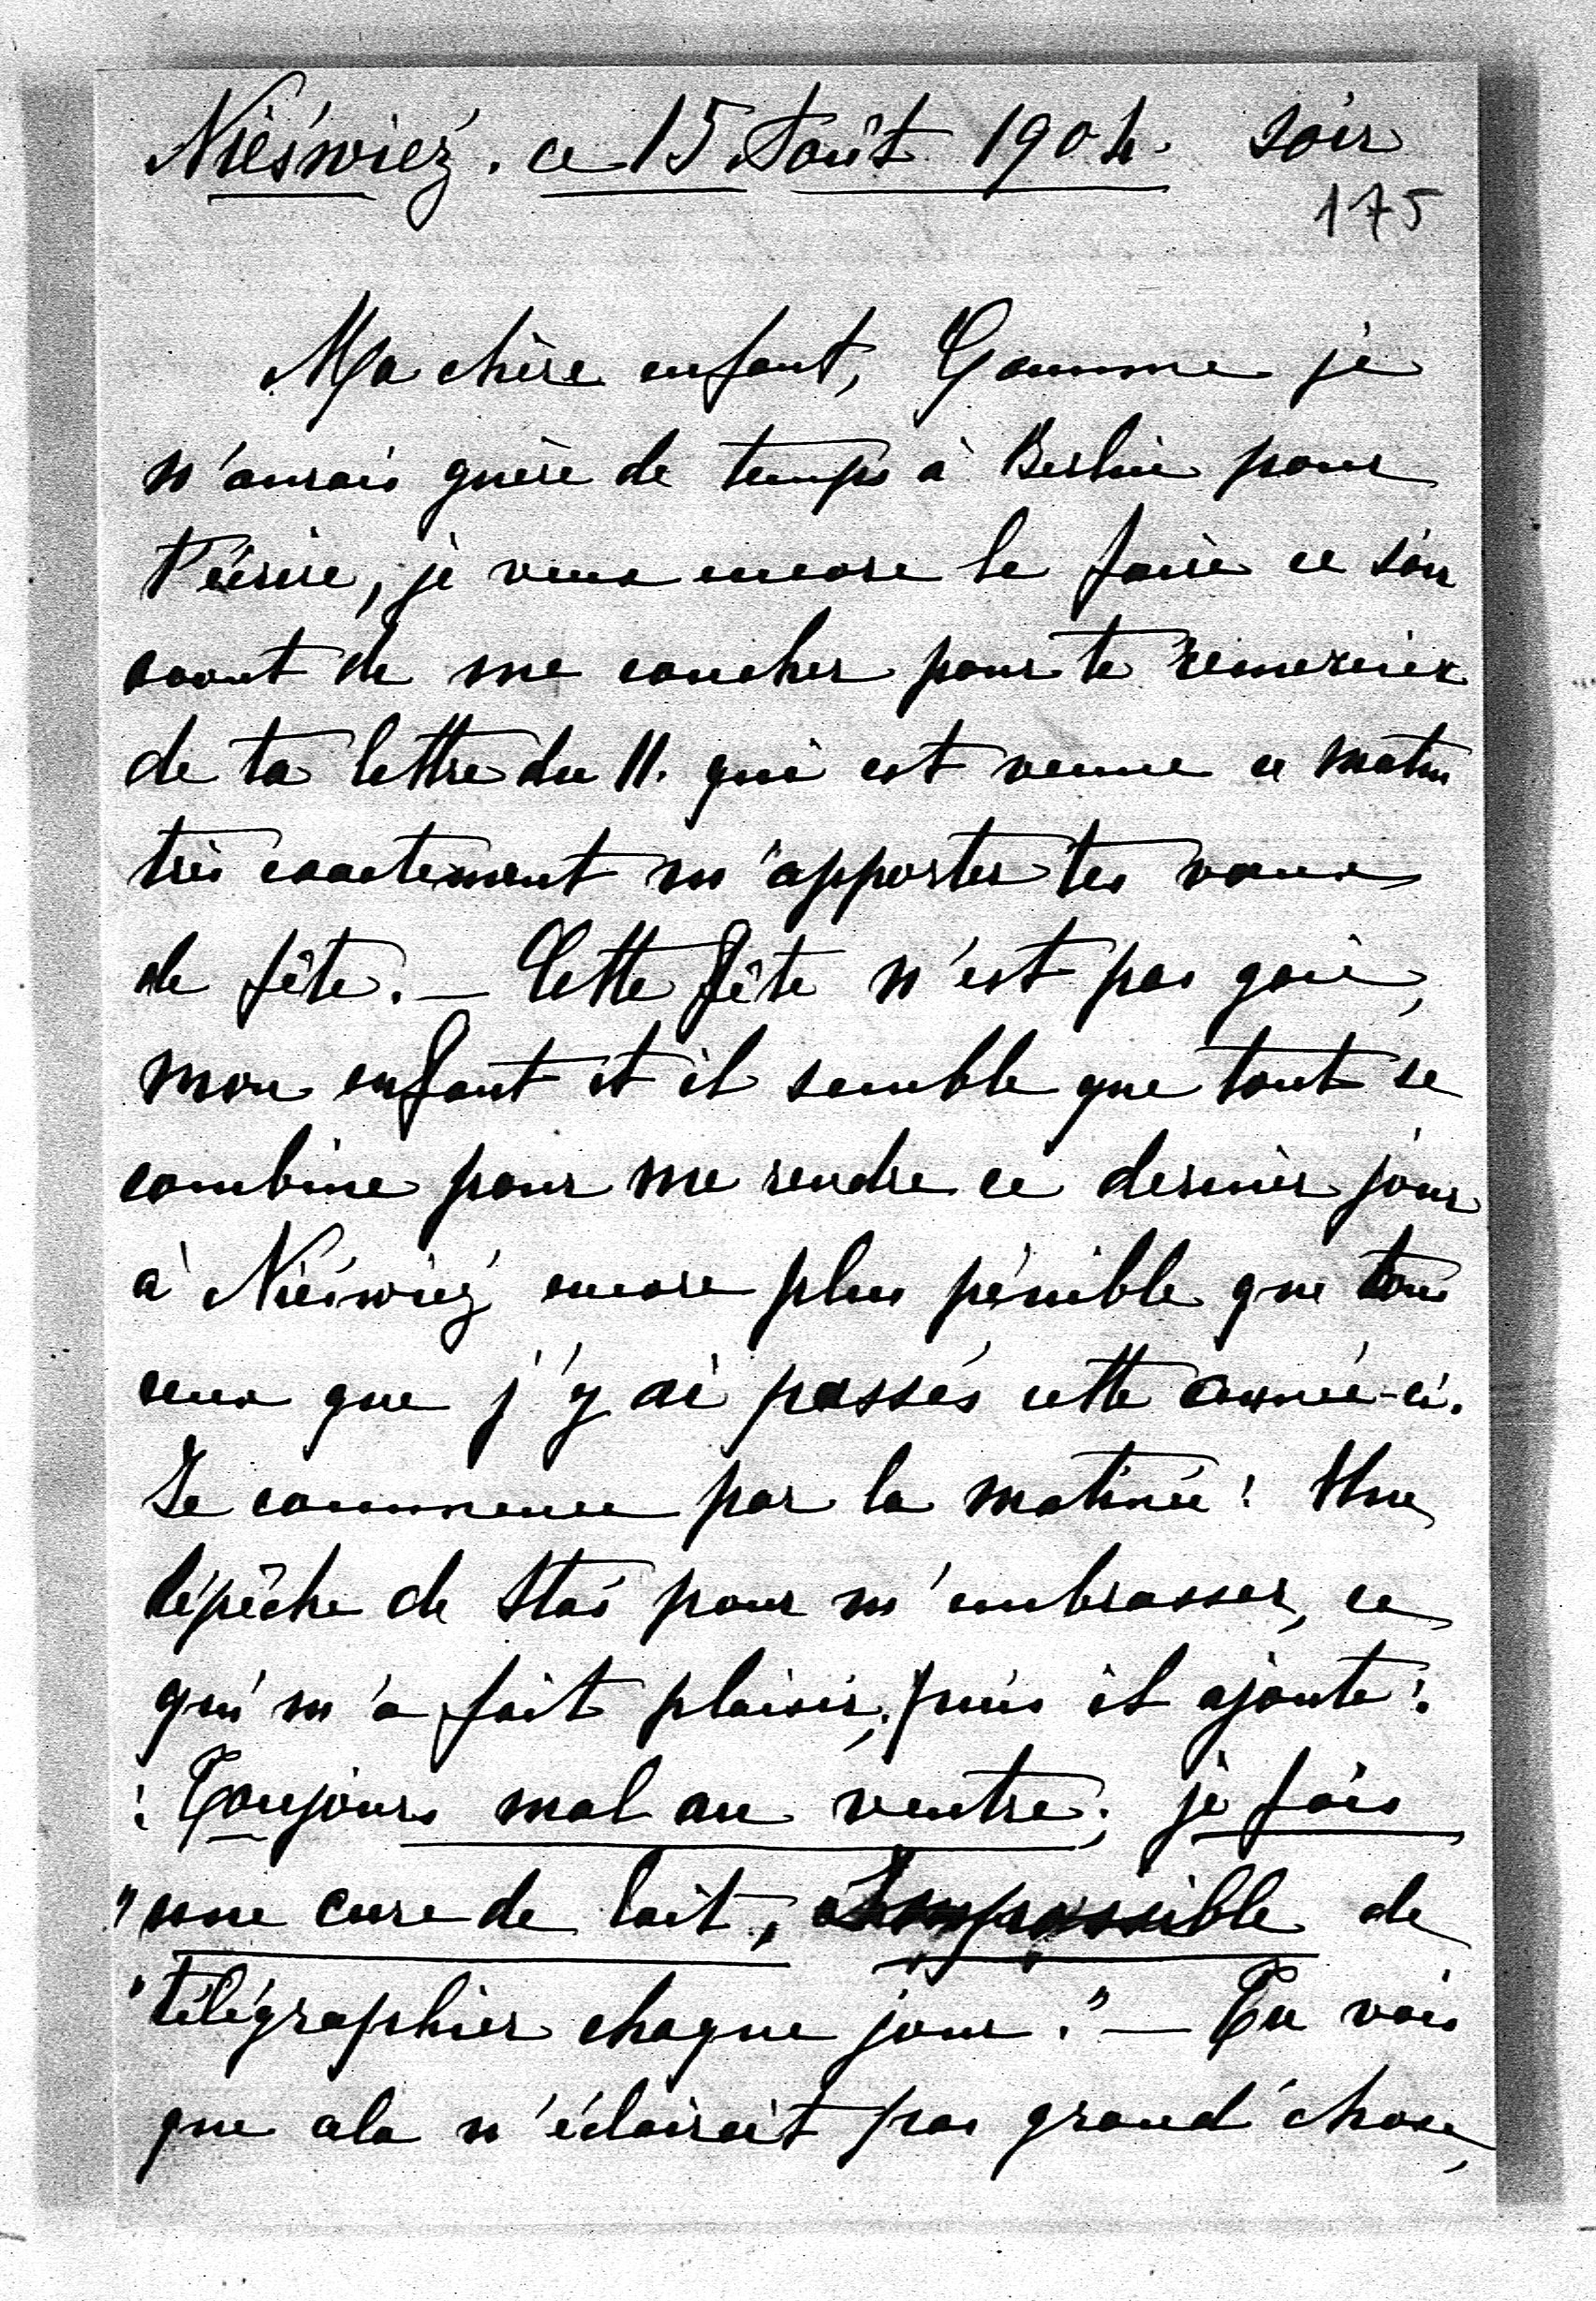 Nieśwież. ce 15 Août 1904. soir
175
Ma chère enfant, Comme je
n'aurais guère de temps à Berlin pour
t'écrire, je veux encore le faire ce soir
avant de me coucher pour te remercier
de ta lettre du 11. qui est venue ce matin
très exactement m'apporter tes vœux
de fête. — Cette fête n'est pas gaie,
mon enfant et il semble que tout se
combine pour me rendre ce dernier jour
à Nieśwież encore plus pénible que tous
ceux que j'y ai passés cette année-ci.
Je commence par la matinée: Une
dépêche de Staś pour m'embrasser, ce
qui m'a fait plaisir, puis il ajoute:
: Toujours mal au ventre; je fais
"une cure de lait, Impossible de
"télégraphier chaque jour." — Tu vois
que cela n'éclaircit pas grand'chose,